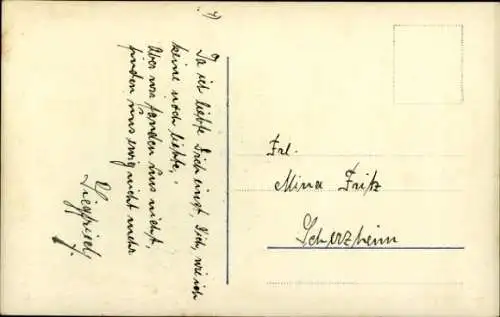 4)
Da ich liebte Dich einst, Dich, wie ich
keine noch liebte,
Aber wir fanden uns nicht,
finden uns ewig nicht mehr
Siegfried.
Frl.
Mina Fritz
Scherzheim